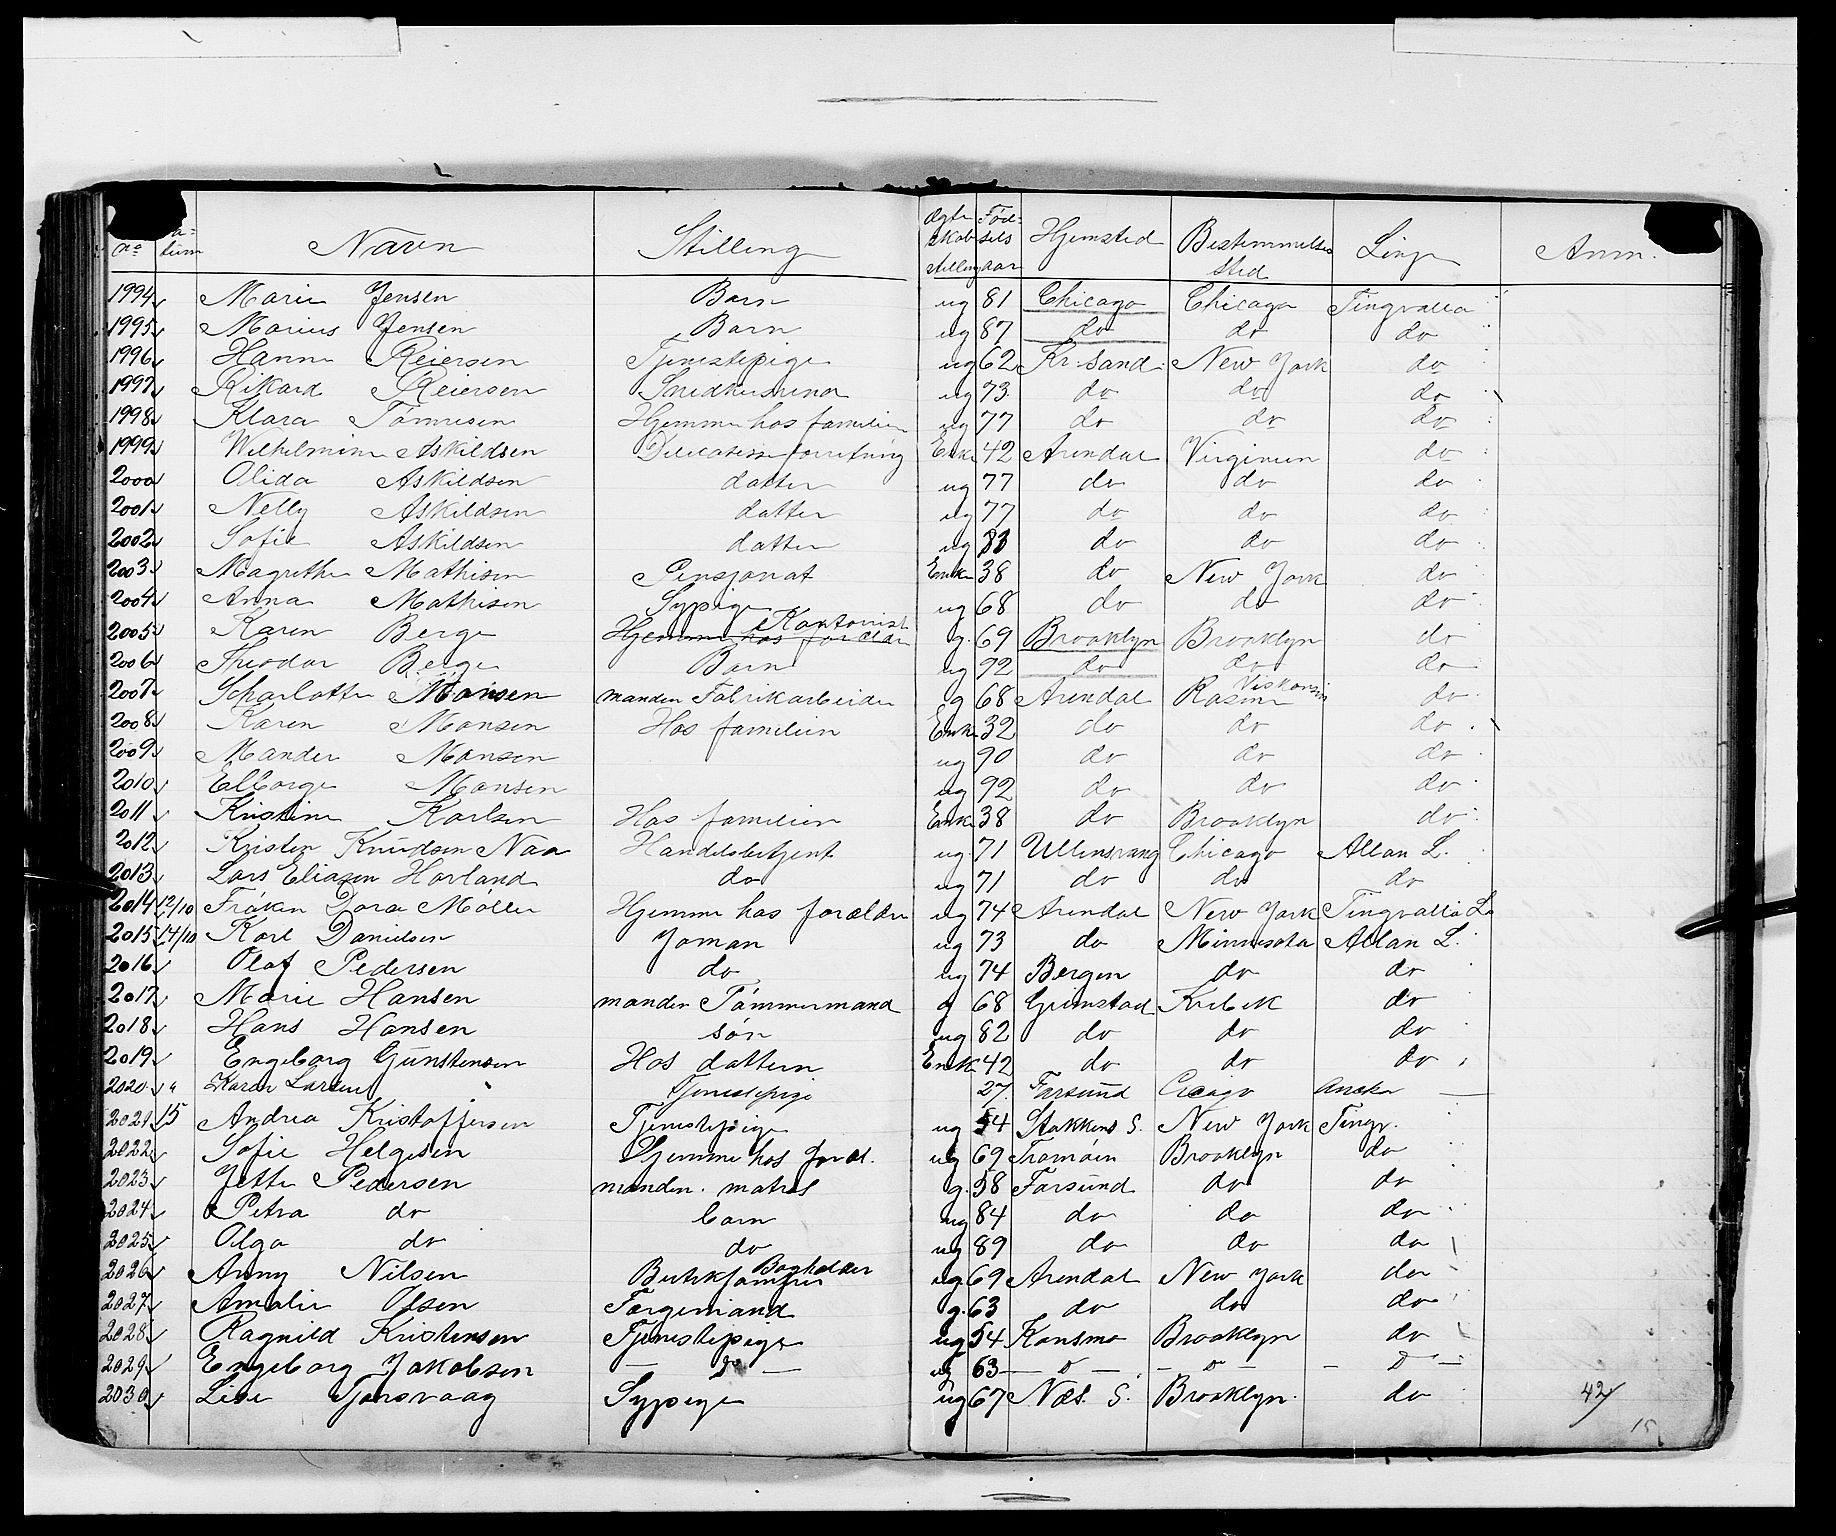 No Datum Navn Stilling Ægteskabstilling Fødselsaar Hjemsted Bestemmelses Sted Linje Anm.
1994 Marie Jensen Barn ug 81 Chicago Chicago Tingvalla
1995 Marius Jensen Barn ug 87 do do do
1996 Hanne Reiersen Tjenestepige ug 62 Kr.sand New York do
1997 Rikard Reiersen ug 73 do do do
1998 Klara Tønnesen Hjemme hos familien ug 77 do do do
1999 Wilhelmine Askildsen forretning Enke 42 Arendal Virginien do
2000 Olida Askildsen datter ug 77 do do do
2001 Nelly Askildsen datter ug 77 do do do
2002 Sofie Askildsen datter ug 83 do do do
2003 Magrethe Mathisen Pensjonat Enke 38 do New York do
2004 Anna Mathisen Sypige ug 68 do do do
2005 Karen Berge Hjemme hos forældre Kontorist g. 69 Brooklyn Brooklyn do
2006 Theodor Berge Barn ug 92 do do do
2007 Scharlotte Monsen manden Fabrikarbeider g 68 Arendal Rasine Viskonsin do
2008 Karen Monsen Hos familien Enke 32 do do do
2009 Mander Monsen ug 90 do do do
2010 Elborge Monsen ug 92 do do do
2011 Kristine Karlsen Hos familien Enke 38 do Brooklyn do
2012 Kristen Knudsen Naa Handelsbetjent ug 71 Ullensvang Chicago Allan L.
2013 Lars Eliasen Horland do ug 71 do do do
2014 12/10 Frøken Dora Møller Hjemme hos forældre ug 74 Arendal New York Tingvalla L
2015 14/10 Karl Danielsen Joman ug 73 do Minnesota Allan L.
2016 Olaf Pedersen do ug 74 Bergen do do
2017 Marie Hansen manden Tømmermand g 68 Grimstad Kvibek do
2018 Hans Hansen søn ug 82 do do do
2019 Engeborg Gunstensen Hos dattern Enke 42 do do do
2020 " Karen Larsen Tjenestepige 27. Farsund Cicago Anchor
2021 15 Andrea Kristoffersen Tjenestepige ug 54 Stokkens S. New York Tingv.
2022 Sofie Helgesen Hjemme hos foræl. ug 69 Tromøen Brooklyn do
2023 Jette Pedersen manden. matros g. 58 Farsund do do
2024 Petra do barn ug 84 do do do
2025 Olga do do ug 89 do do do
2026 Anny Nilsen Butikjomfru Bogholder ug 69 Arendal New York do
2027 Amalie Olsen Færgemand g. 63 do do do
2028 Ragnild Kristensen Tjenestepige ug 54 Konsmo Brooklyn do
2029 Engeborg Jakobsen — do — ug 63 — o — — o — — o —
2030 Lise Tjorsvaag Sypige ug 67 Næs. S. Brooklyn. do
42
15